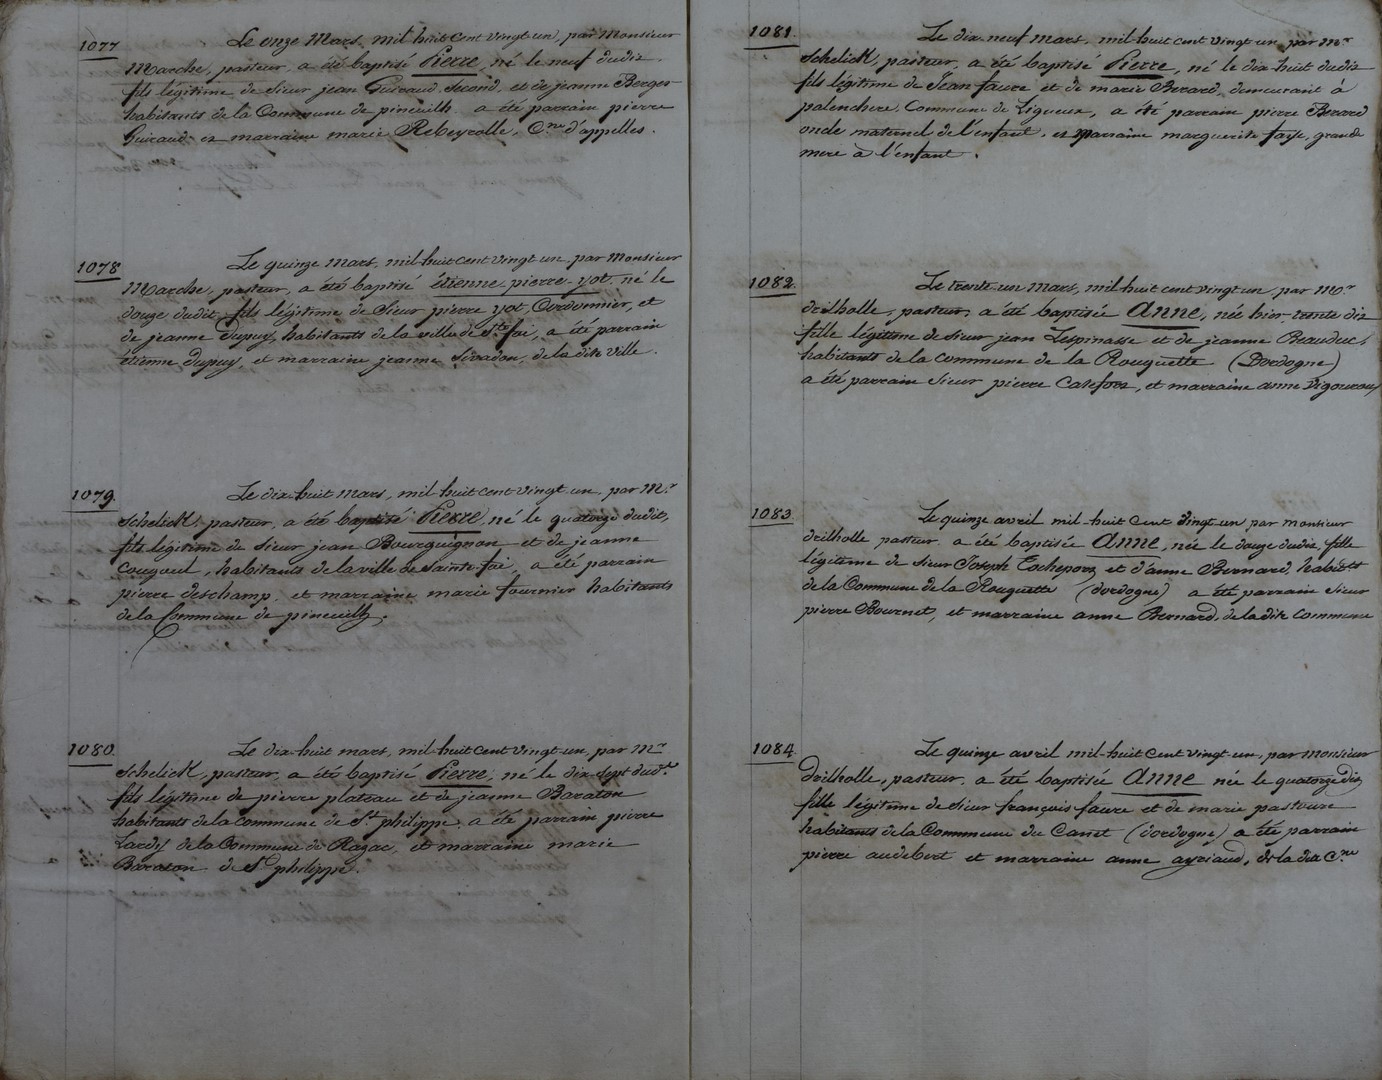 1077
Le onze Mars, mil huit Cent vingt un, par Monsieur
Marche, pasteur, a été baptisé Pierre, né le neuf dudit
fils légitime de Sieur jean Guiraud Second, et de jeanne Berges
habitants de la Commune de pineuilh. a été parrain pierre
Guiraud et marraine marie Rebeyrolle, Cne d'appelles.
1078
Le quinze mars, mil-huit cent vingt un, par Monsieur
Marche, pasteur, a été baptisé étienne-pierre-yot, né le
douze dudit, fils légitime de Sieur pierre yot, Cordonnier, et
de jeanne Dupuy, habitants de la ville de Ste foi, a été parrain
étienne Dupuy, et marraine jeanne, de la dite ville.
1079
Le dix-huit mars, mil-huit cent vingt un, par Mr
Schelick, pasteur, a été baptisé Pierre, né le quatorze dudit,
fils légitime de Sieur jean Bourguignon et de jeanne
Cougoul, habitants de la ville de Sainte foi, a été parrain
pierre deschamp, et marraine marie fournier habitants
de la Commune de pineuilh.
1080
Le dix-huit mars, mil-huit cent vingt-un, par Mr
Schelick, pasteur, a été baptisé Pierre, né le dix-sept dudt
fils légitime de pierre plateau et de jeanne Baraton
habitants de la Commune de St philippe. a été parrain pierre
Lardy de la Commune de Razac, et marraine marie
Baraton de St philippe.
1081
Le dix-neuf mars, mil huit cent vingt un, par Mr
Schelick, pasteur, a été baptisé Pierre, né le dix-huit dudit
fils légitime de Jean faure et de marie Berard, demeurant à
palenchere, Commune de Ligueux, a été parrain pierre Berard
oncle maternel de l'enfant, et marraine marguerite faye, grand
mère à l'enfant.
1082
Le trente un mars, mil-huit cent vingt un, par Mr
drilholle, pasteur, a été baptisée Anne, née hier, trente dit
fille légitime de Sieur jean Lespinasse et de jeanne Beauduc,
habitants de la Commune de la Rouquette (Dordogne)
a été parrain Sieur pierre Calefort, et marraine anne Vigouroux
1083
Le quinze avril mil-huit Cent vingt-un par monsieur
drilholle pasteur a été baptisée Anne, née le douze dudit, fille
légitime de Sieur Joseph Cocheport et d'anne Bernard, habitts
de la Commune de la Rouquette (dordogne) a été parrain Sieur
pierre Bournet, et marraine anne Bernard, de la dite Commune
1084
Le quinze avril mil-huit Cent vingt-un, par monsieur
Drilholle, pasteur, a été baptisée Anne née le quatorze dit
fille légitime de Sieur françois faure et de marie pastoure
habitants de la Commune du Canet (dordogne) a été parrain
pierre audebert et marraine anne ayriaud, de la dte Cne